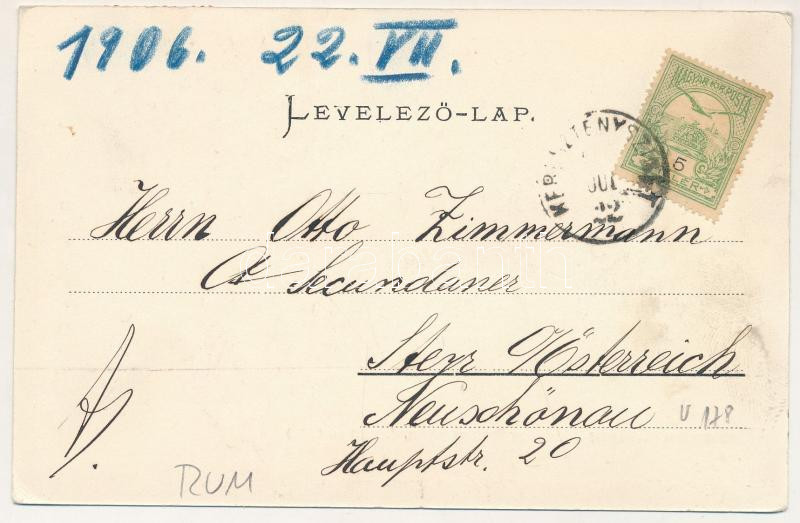 1906. 22. VII.
LEVELEZŐ-LAP.
MAGYAR KIR. POSTA
5
Herrn Otto Zimmermann
Secundaner
Steyr Österreich
Neuschönau
V 178
Hauptstr. 20
RUM